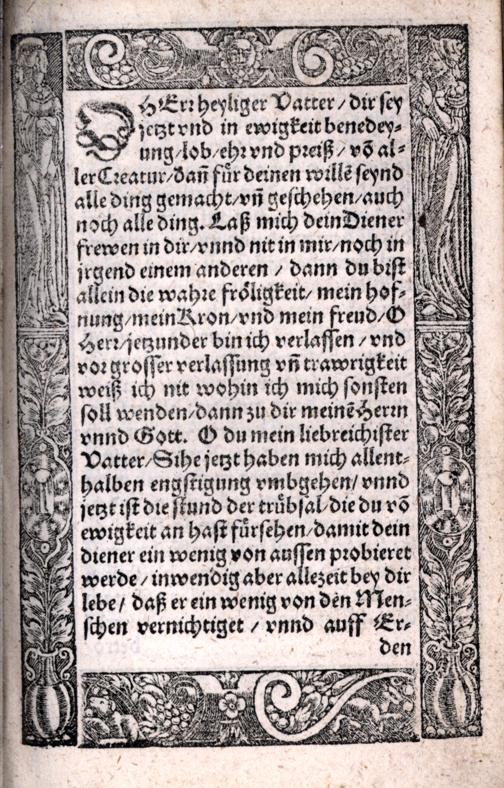 O HErr heyliger Vatter / dir sey
jetzt vnd in ewigkeit benedey⸗
ung / lob / ehr vnd preiß / võ al⸗
ler Creatur / dañ für deinen willẽ seynd
alle ding gemacht / vñ geschehen / auch
noch alle ding. Laß mich dein Diener
frewen in dir / vnnd nit in mir / noch in
jrgend einem anderen / dann du bist
allein die wahre frôligkeit / mein hof⸗
nung / mein Kron / vnd mein freud / O
Herr / jetzunder bin ich verlassen / vnd
vor grosser verlassung vñ trawrigkeit
weiß ich nit wohin ich mich sonsten
soll wenden / dann zu dir meinẽ Herrn
vnnd Gott. O du mein liebreichister
Vatter / Sihe jetzt haben mich allent⸗
halben engstigung vmbgehen / vnnd
jetzt ist die stund der trübsal / die du võ
ewigkeit an hast fürsehen / damit dein
diener ein wenig von aussen probieret
werde / inwendig aber allezeit bey dir
lebe / daß er ein wenig von den Men⸗
schen vernichtiget / vnnd auff Er⸗
den